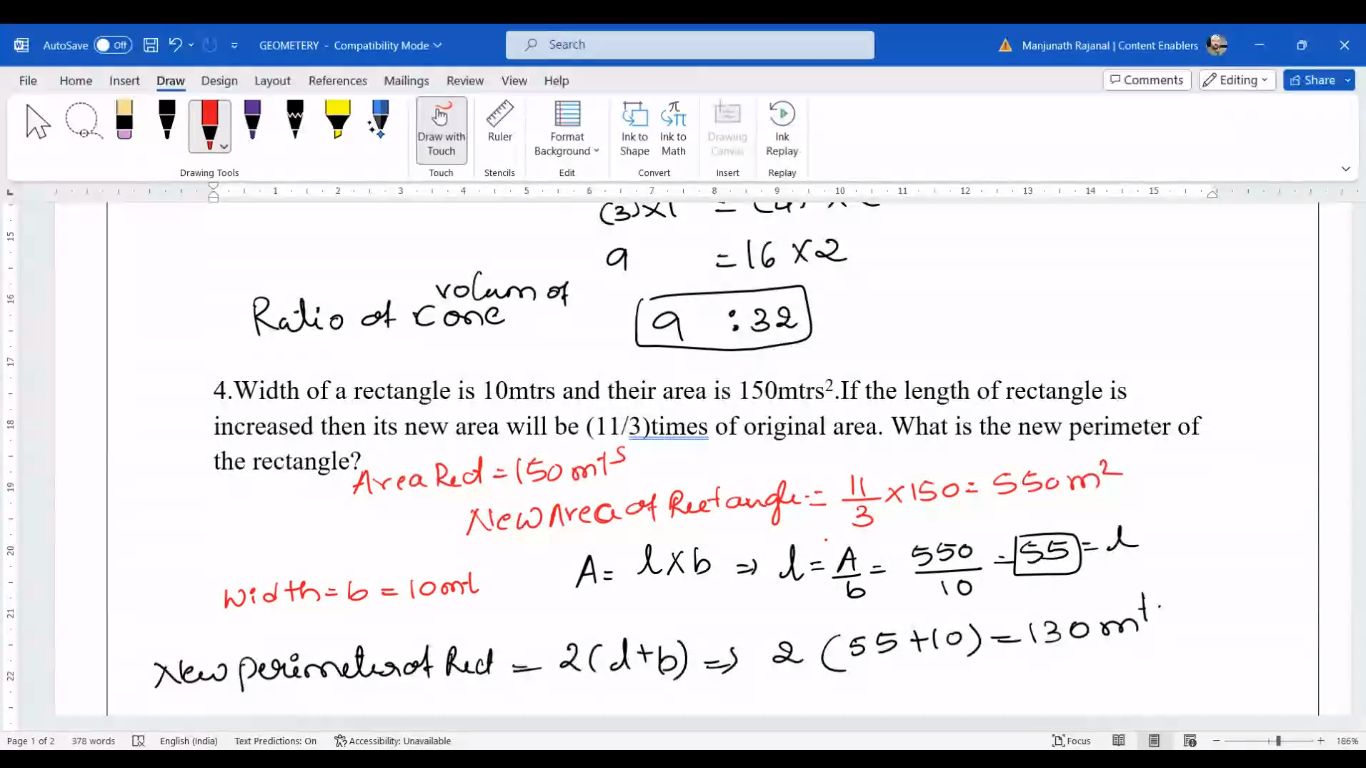 AutoSave Off GEOMETERY - Compatibility Mode Search Manjunath Rajanal | Content Enablers
File Home Insert Draw Design Layout References Mailings Review View Help Comments Editing Share
Draw with Touch Ruler Format Background Ink to Shape Ink to Math Drawing Canvas Ink Replay
Drawing Tools Touch Stencils Edit Convert Insert Replay
1 2 3 4 5 6 7 8 9 10 11 12 13 14 15
9 = 16 × 2
volum of
Ratio of cone 9 : 32
4.Width of a rectangle is 10mtrs and their area is 150mtrs².If the length of rectangle is
increased then its new area will be (11/3)times of original area. What is the new perimeter of
the rectangle?
Area Rect = 150 mts
New Area of Rectangle = 11/3 × 150 = 550 m²
A = l × b ⇒ l = A/b = 550/10 = 55 = l
width = b = 10 mt
New perimeter of Rect = 2(l+b) ⇒ 2(55+10) = 130 mt
Page 1 of 2 378 words English (India) Text Predictions: On Accessibility: Unavailable Focus 186%